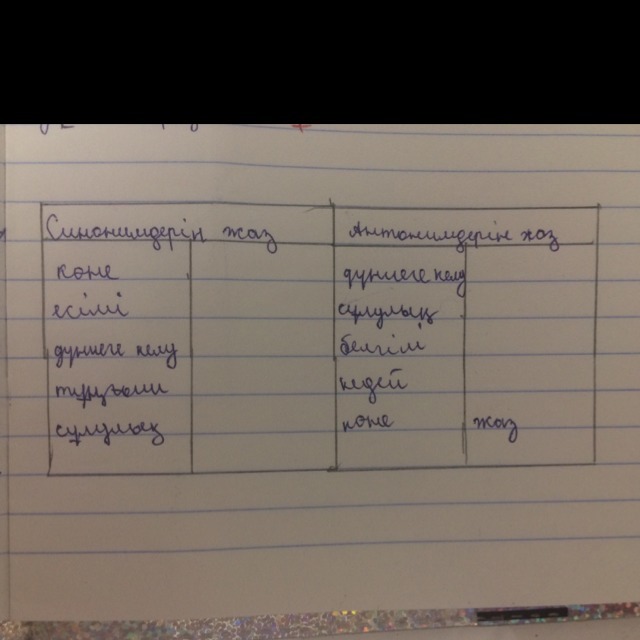 Синонимдерін жаз Антонимдерін жаз
көне дүниеге келу
есімі сұлулық
дүниеге келу белгілі
тұрғыны кедей
сұлулық көне жаз